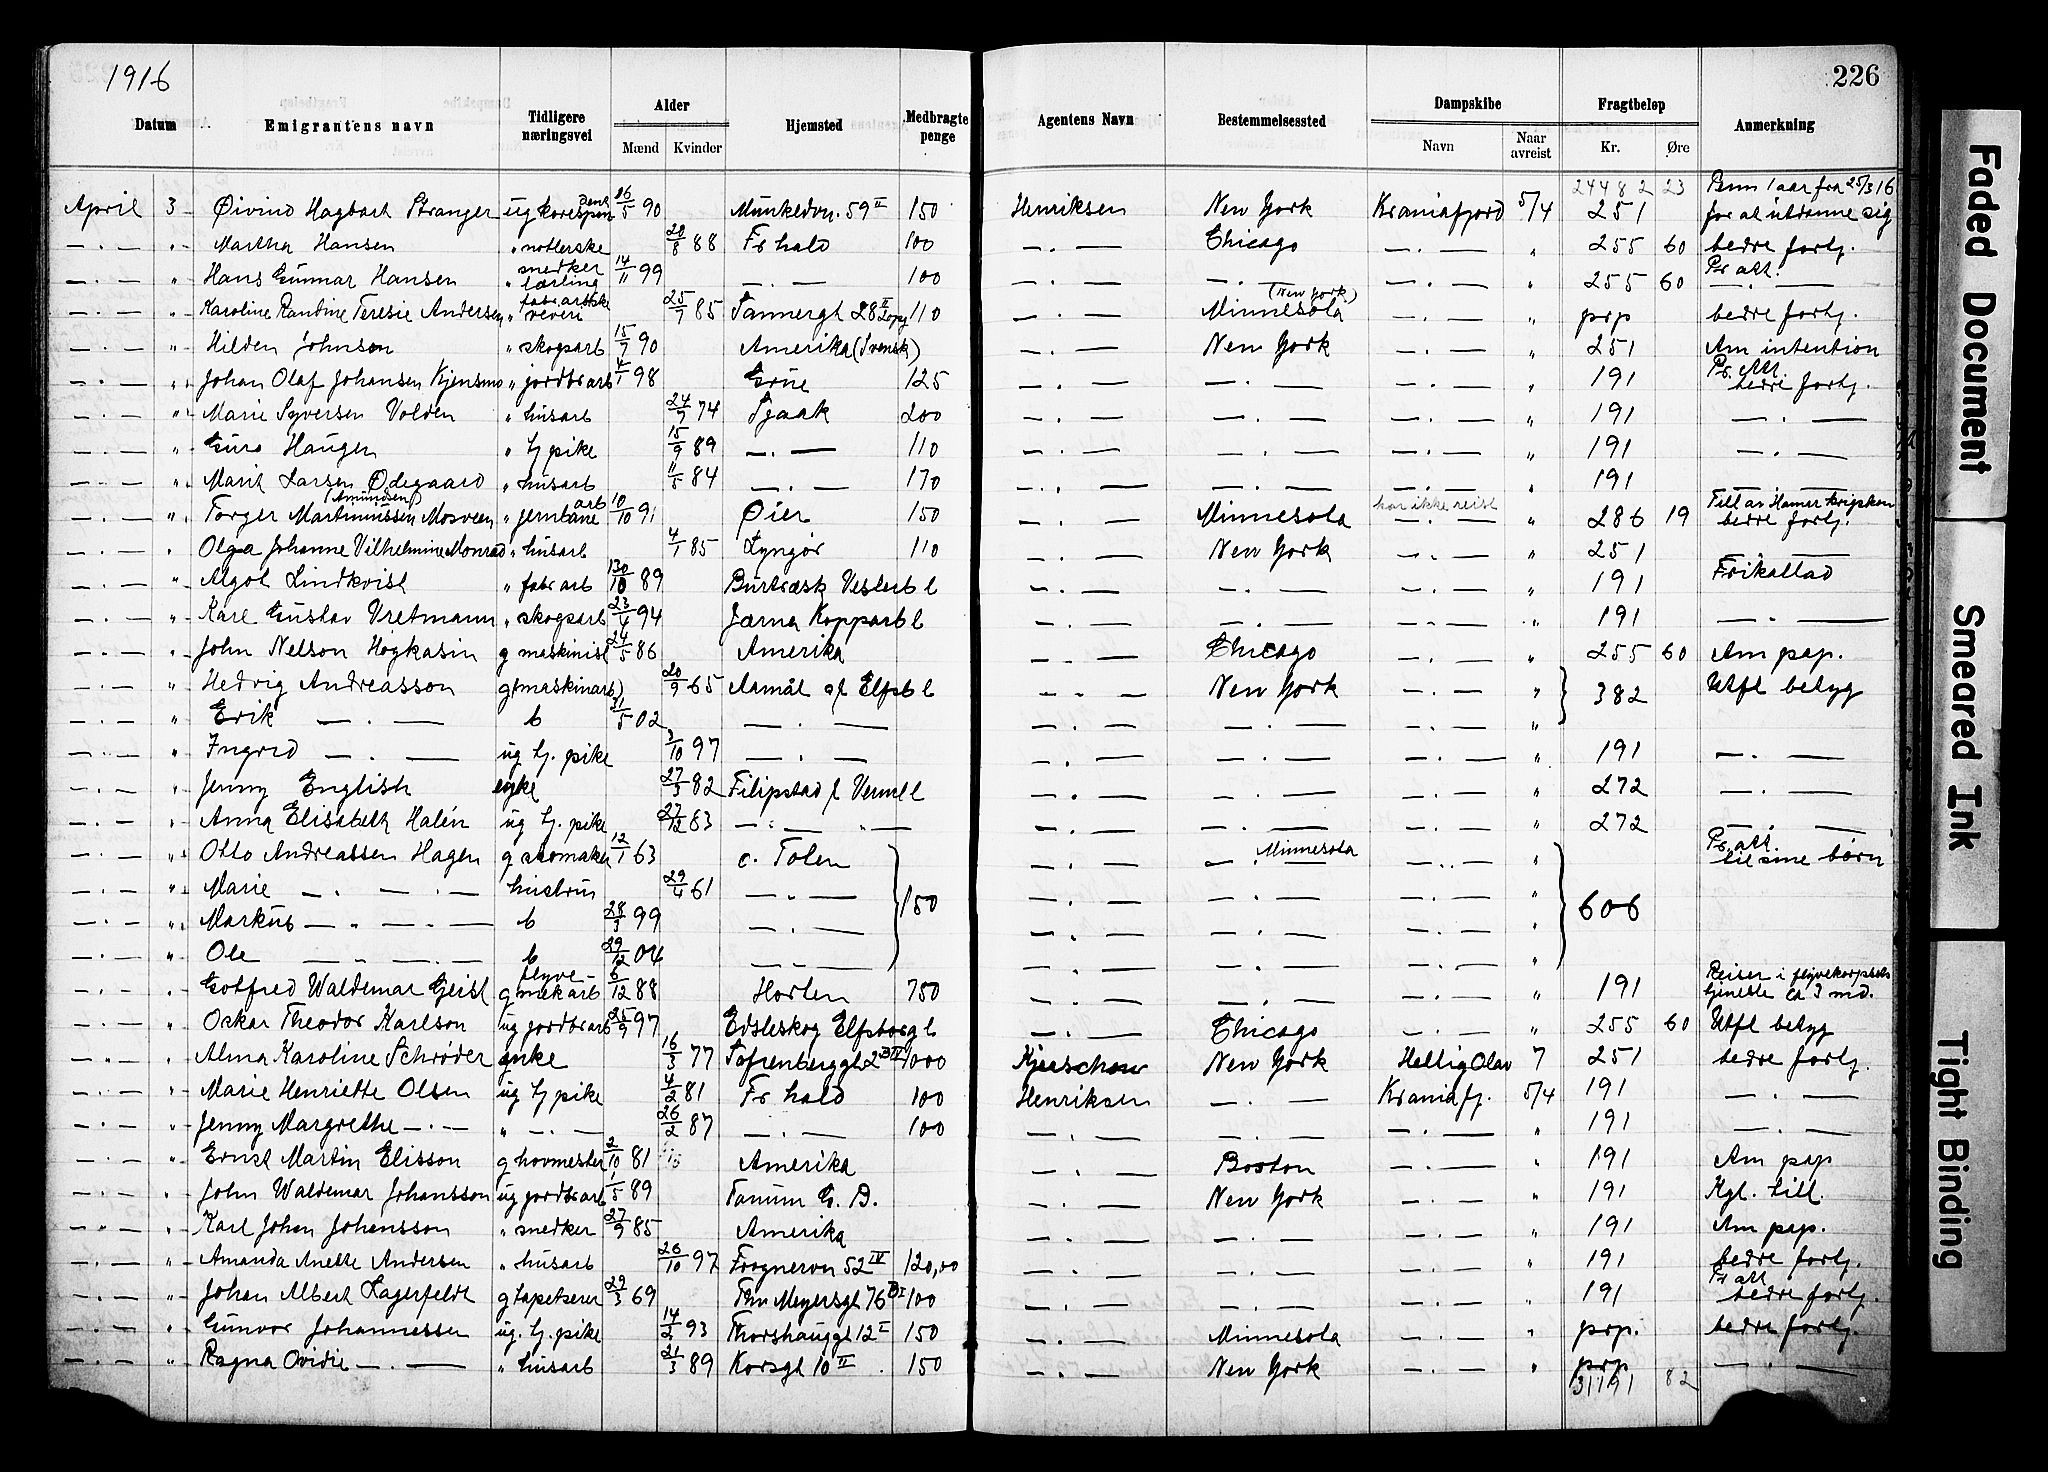 1916
226
Datum Emigrantens navn Tidligere næringsvei Alder Mænd Kvinder Hjemsted Medbragte penge Agentens Navn Bestemmelsessted Dampskibe Navn Naar avreist Fragtbeløp Kr. Øre Anmerkning
24482 23
April 3 Øivind Hagbart Stranger ug korrespondent 26/5 90 Munkedvn. 59 II 150 Henriksen New York Kraniafjord 5/4 251 Perm 1 aar fra 25/3 16 for at utdanne sig
— . — " Martha Hansen " 20/8 88 Fr hald 100 — . — Chicago — . — " 255 60 bedre fortj.
— . — " Hans Gunnar Hansen " snedker lærling 14/11 99 — . — 100 — . — — . — — . — " 255 60 Pr att. — . —
— . — " Karoline Randine Teresie Andersen " fabr.arbske veveri 25/7 85 Tannergt 28 II opg 110 — . — (New York) Minnesota — . — " prp bedre fortj.
— . — " Hilden Johnson " skogsarb 15/7 90 Amerika (Svensk) — . — New York — . — " 251 Am intention
— . — " Johan Olaf Johansen Kjensmo " jordbrarb 4/1 98 Grue 125 — . — — . — — . — " 191 Pr. Att. bedre fortj.
— . — " Marie Syversen Volden " husarb 24/7 74 200 — . — — . — — . — " 191 — . —
— . — " Guro Haugen " tj pike 15/9 89 — . — 110 — . — — . — — . — " 191 — . —
— . — " Marit Larsen Ødegaard " husarb 11/5 84 — . — 170 — . — — . — — . — " 191 — . —
— . — " Torger Martinussen (Amundsen) Mosveen " jernbane arb 10/10 91 Øier 150 — . — Minnesota har ikke reist " 286 19 Till av Hamar krigskom bedre fortj.
— . — " Olga Johanne Vilhelmine Monrad " husarb 4/1 85 Lyngør 110 — . — New York — . — " 251 — . —
— . — " Algot Lindkvist " fabr arb 130/10 89 Burtræsk Vesterb l — . — — . — — . — " 191 Frikallad
— . — " Karl Gustav Vretmann " skogsarb 23/4 94 Jærna Kopparb l — . — — . — — . — " 191 — . —
— . — " John Nelson Høgkasin g maskinist 24/5 86 Amerika — . — Chicago — . — " 255 60 Am pap.
— . — " Hedvig Andreasson g (maskinarb) 20/9 65 Aamål af Elfsb l — . — New York — . — " 382 Utfl betyg
— . — " Erik — . — b 31/5 02 — . — — . — — . — — . — "
— . — " Ingrid — . — ug tj. pike 3/10 97 — . — — . — — . — — . — " 191 — . —
— . — " Jenny English enke 27/3 82 Filipstad f Verml l — . — — . — — . — " 272 — . —
— . — " Anna Elisabeth Halén ug tj. pike 27/12 83 — " — " — — . — — . — — . — " 272 — . —
— . — " Otto Andreassen Hagen g skomaker 12/1 63 c. Toten — . — Minnesota — . — " Pr. att. til sine børn
— . — " Marie — . — . — hustru 29/4 61 — . — 150 — . — — . — — . — " 606
— . — " Markus — . — . — b 28/3 99 — . — — . — — . — — . — "
— . — " Ole — . — . — b 29/12 04 — . — — . — — . — — . — "
— . — " Gotfred Waldemar Geist g flyve-mek arb 6/12 88 Horten 750 — . — — . — — . — " 191 Reiser i flyvekorpsets tjeneste ca 3 md.
— . — " Oskar Theodor Karlson ug jordbrarb 25/9 97 Edsleskog Elfsborg l — . — Chicago — . — " 255 60 Utfl betyg
— . — " Alma Karoline Schrøder enke 16/3 77 Tofrenberggt 2 1000 Kjerschow New York Hellig Olav 7 251 bedre fortj.
— . — " Marie Henriette Olsen ug tj pike 4/2 81 Fr hald 100 Henriksen — . — Kraniafj. 5/4 191 — . —
— . — " Jenny Margrethe — . — " — . — 26/2 87 — . — 100 — . — — . — — . — " 191 — . —
— . — " Ernst Martin Elisson g hovmester 2/10 81 Amerika — . — Boston — . — " 191 Am pap
— . — " John Waldemar Johansson ug jordbrarb 1/5 89 Tanum G. B. — . — New York — . — " 191 Kgl. till.
— . — " Karl Johan Johansson " snedker 27/9 85 Amerika — . — — . — — . — " 191 Am pap.
— . — " Amanda Anette Andersen " husarb 26/10 97 Frognervn 52 IV 120,00 — . — — . — — . — " 191 bedre fortj.
— . — " Johan Albert Lagerfeldt g tapetserer 29/3 69 Thv Meyersgt 76 B I 100 — . — — . — — . — " 191 Pr att bedre fortj.
— . — " Gunvor Johannessen ug. tj. pike 14/2 93 Thorshauggt 12 I 150 — . — Minnesota — . — " prp. bedre fortj.
— . — " Ragna Ovidie — . — " husarb 21/3 89 Korsgt 10 II 150 — . — New York — . — " prp — . —
31191 82
Faded Document
Smeared Ink
Tight Binding